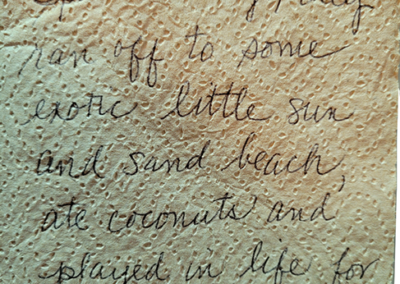 ran off to some
exotic little sun
and sand beach,
ate coconuts and
played in life for